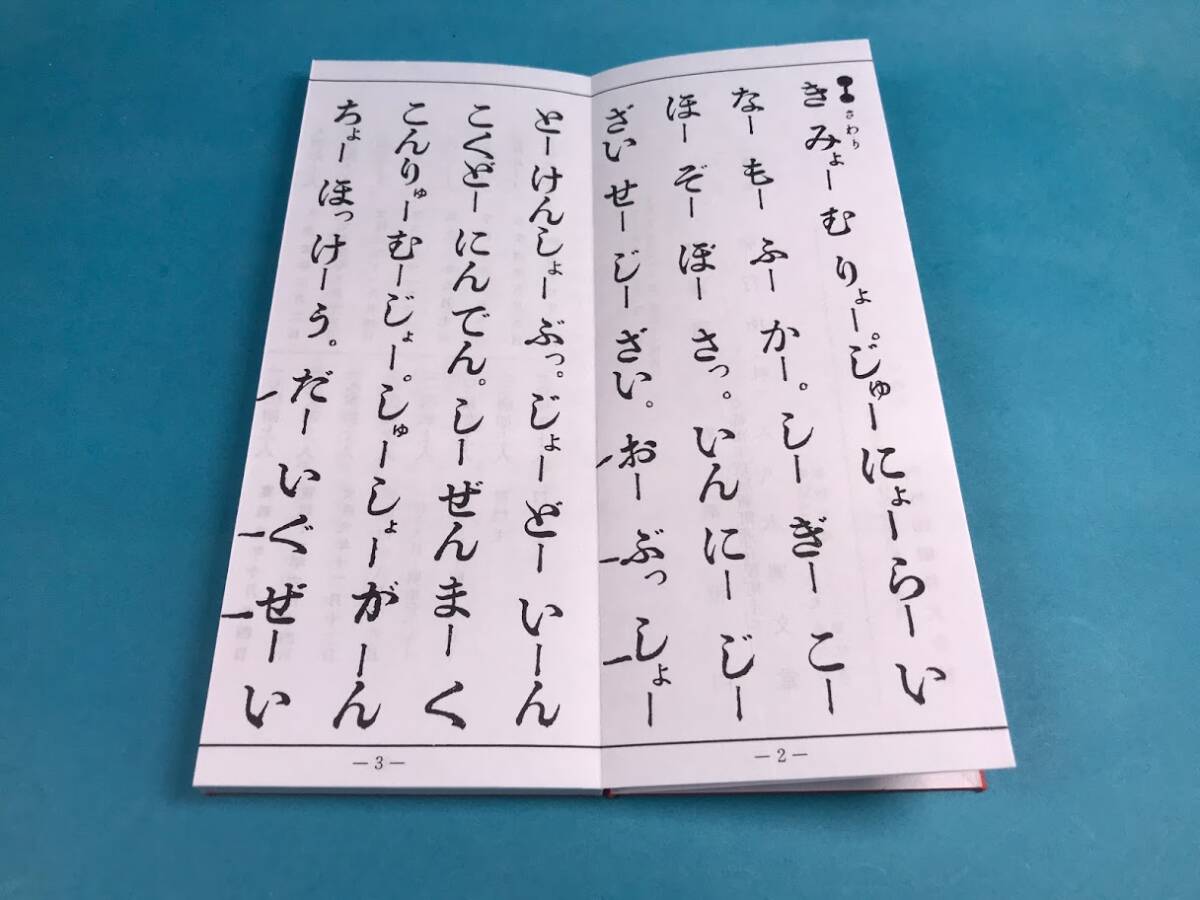 さわり
きみょーむりょー。じゅーにょーらーい
なーもーふーかー。しーぎーこー
ほーぞーぼーさっ。いんにーじー
ざいせーじーざい。おーぶっしょー
— 2 —
とーけんしょーぶっ。じょーどーいーん
こくどーにんでん。しーぜんまーく
こんりゅーむーじょー。しゅーしょーがーん
ちょーほっけーう。だーいぐぜーい
— 3 —